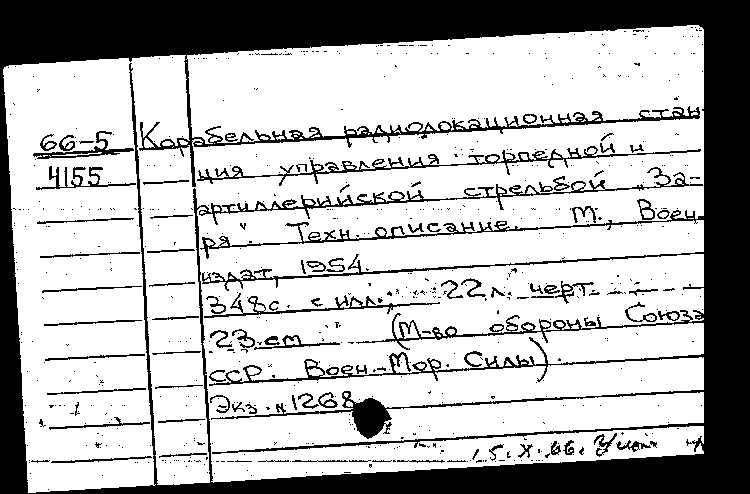 66-5 Корабельная радиолокационная стан-
4155 ция управления торпедной и
артиллерийской стрельбой „За-
ря". Техн. описание. М., Воен-
издат, 1954.
348с. с илл.; 22л. черт.
23.см (М-во обороны Союза
ССР. Воен-Мор. Силы).
Экз. н 1268
15.X.66.